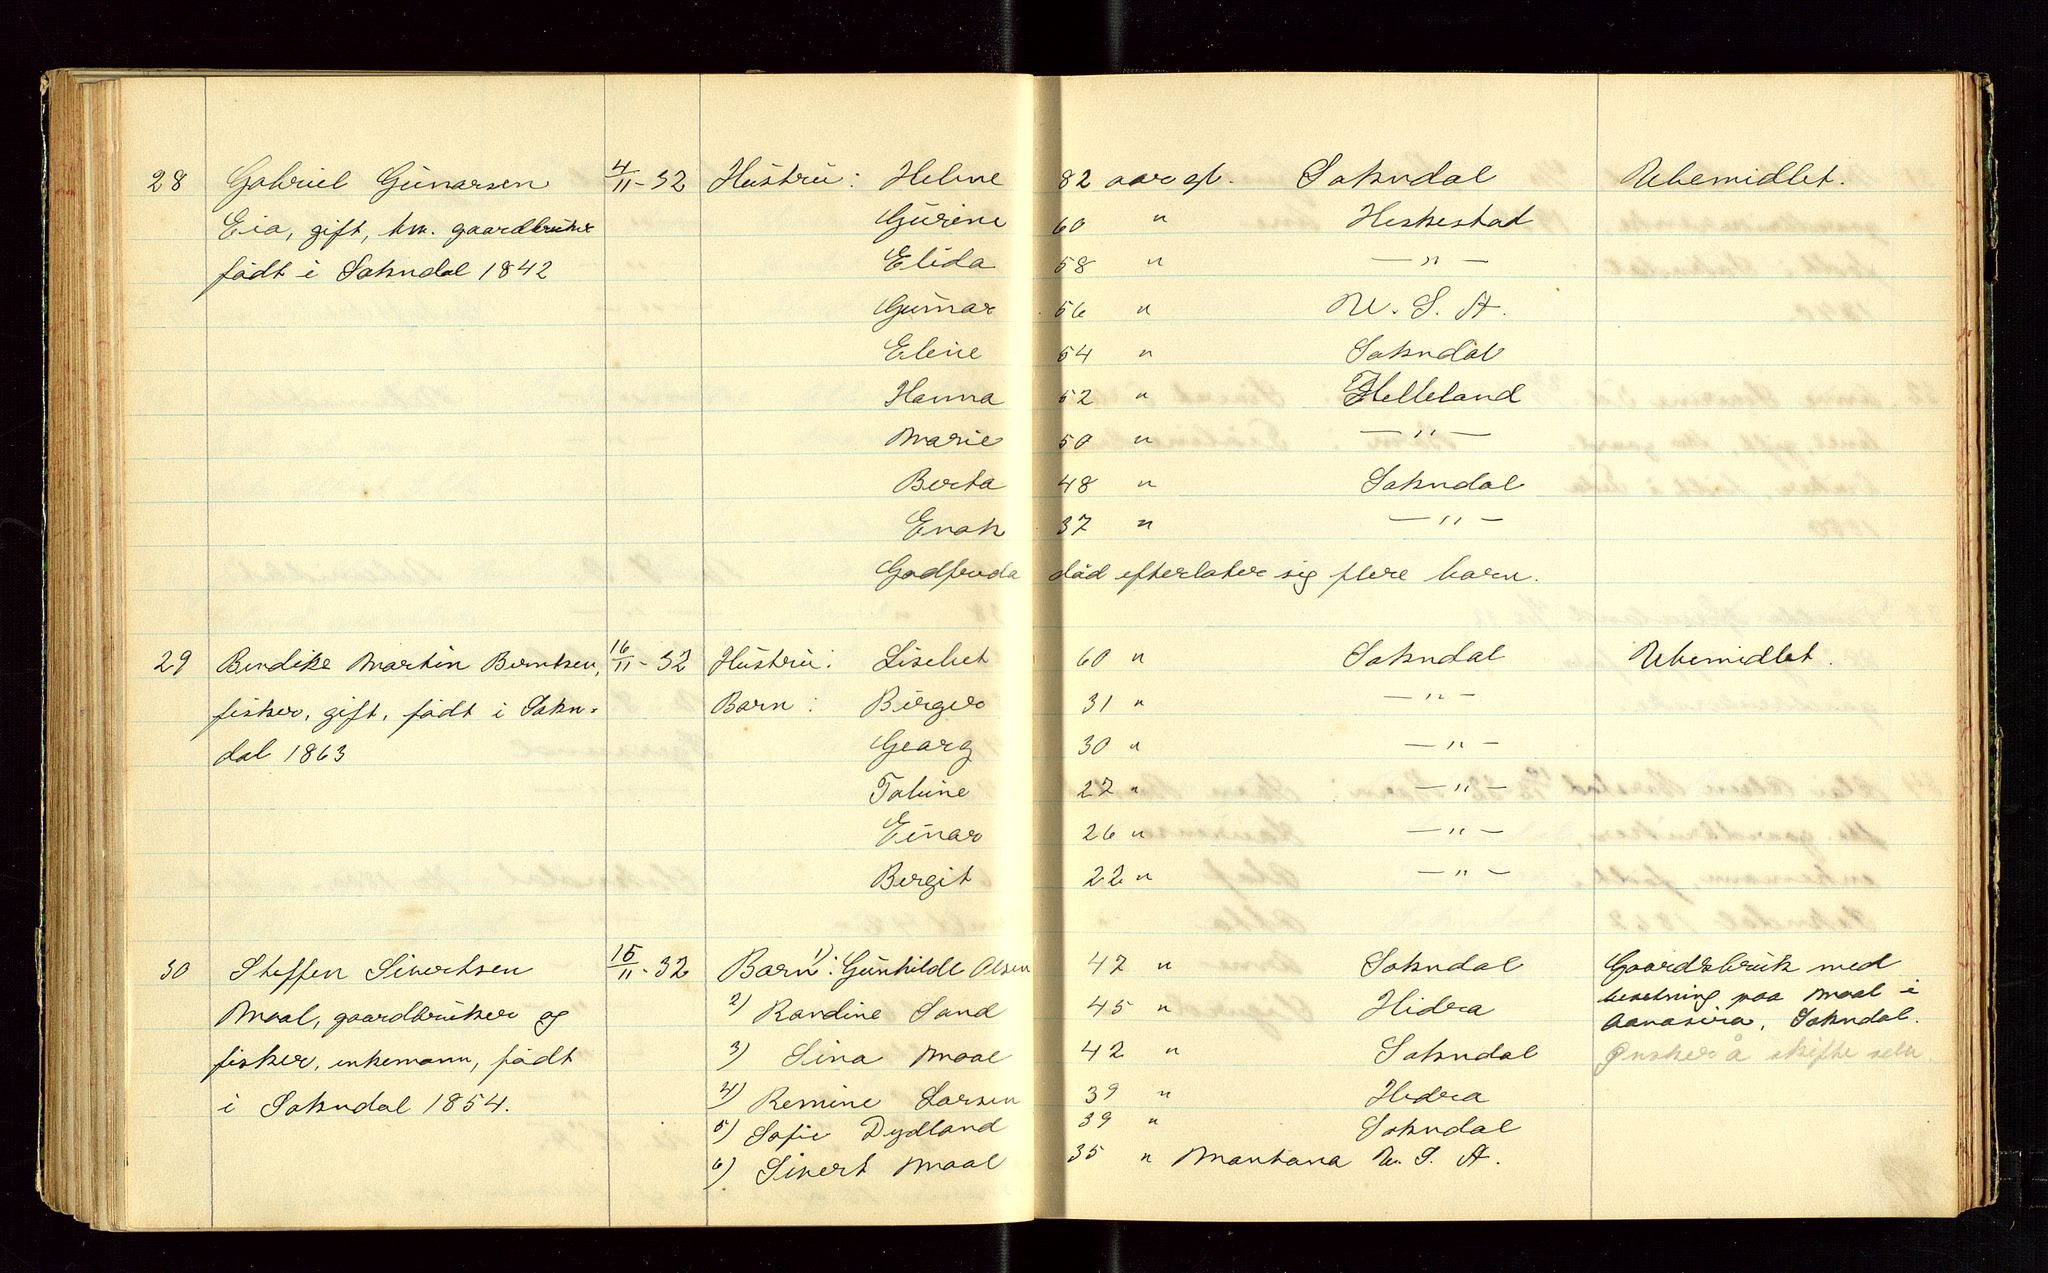 28 Gabriel Gunarsen 4/11-32 Hustru: Helene 82 aar gl. Sokndal Ubemidlet.
Eia, gift, fhv. gaardbruker Gurine 60 " Heskestad
født i Sokndal 1842 Elida 58 " —"—
Gunnar 56 " U. S. A.
Eline 54 " Sokndal
Hanna 52 " Helleland
Marie 50 " —"—
Berta 48 " Sokndal
Enok 37 " —"—
Godfreda død efterlater sig flere barn.
29 Bendike Martin Berntsen, 16/11-32 Hustru: Lisebet 60 " Sokndal Ubemidlet.
fisker, gift, født i Sokn- Barn: Birger 31 " —"—
dal 1863 Georg 30 " —"—
Tobine 27 " —"—
Einar 26 " —"—
Bergit 22 " —"—
30 Steffen Sivertsen 15/11-32 Barn: 1) Gunhilde Olsen 47 " Sokndal Gaardsbruk med
Moal, gaardbruker og 2) Randine Sand 45 " Hidra besetning paa Moal i
Aanasira, Sokndal.
fisker, enkemann, født 3) Sina Moal 42 " Sokndal Ønsker å skifte selv.
i Sokndal 1854. 4) Remine Larsen 39 " Hidra
5) Sofie Dydland 39 " Sokndal
6) Sivert Moal 35 " Montana U. S. A.